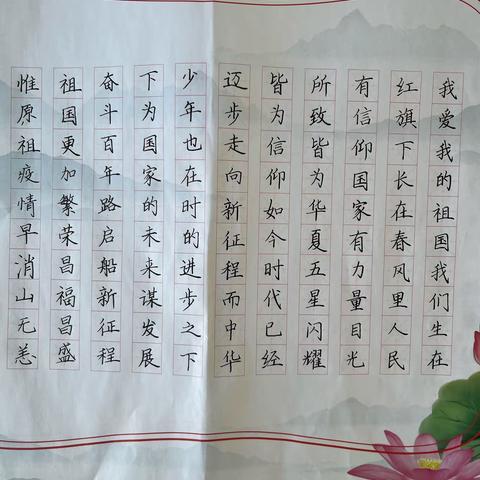 我爱我的祖国我们生在
红旗下长在春风里人民
有信仰国家有力量目光
所致皆为华夏五星闪耀
皆为信仰如今时代已经
迈步走向新征程而中华
少年也在时的进步之下
下为国家的未来谋发展
奋斗百年路启船新征程
祖国更加繁荣昌福昌盛
惟原祖疫情早消山无恙